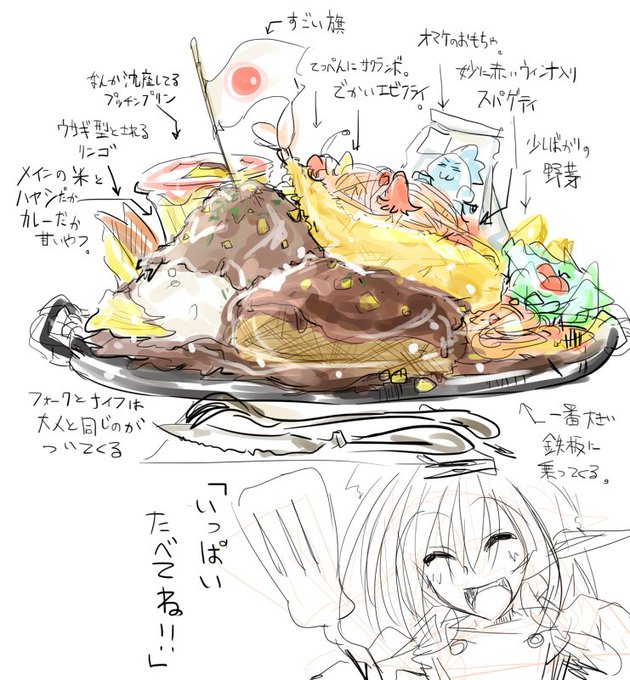 すごい旗
オマケのおもちゃ。
なんか沈座してる
プッチンプリン
てっぺんにサクランボ。
でかいエビフライ。
妙に赤いウィンナ入り
スパゲティ
ウサギ型とされる
リンゴ
少しばかりの
野菜
メインの米と
ハヤシだか
カレーだか
甘いやつ。
フォークとナイフは
大人と同じのが
ついてくる
一番大きい
鉄板に
乗ってくる。
「いっぱい
たべてね!!」